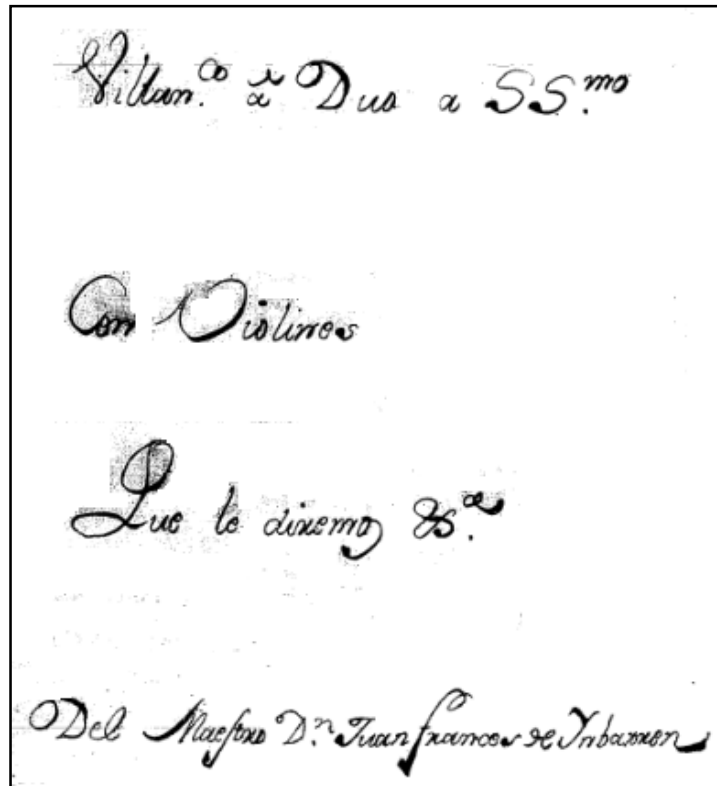 Villan.co â Duo a SS.mo
Con Violines
Que le diremos &s.a
Del Maestro D.n Juan frances de Yribarren